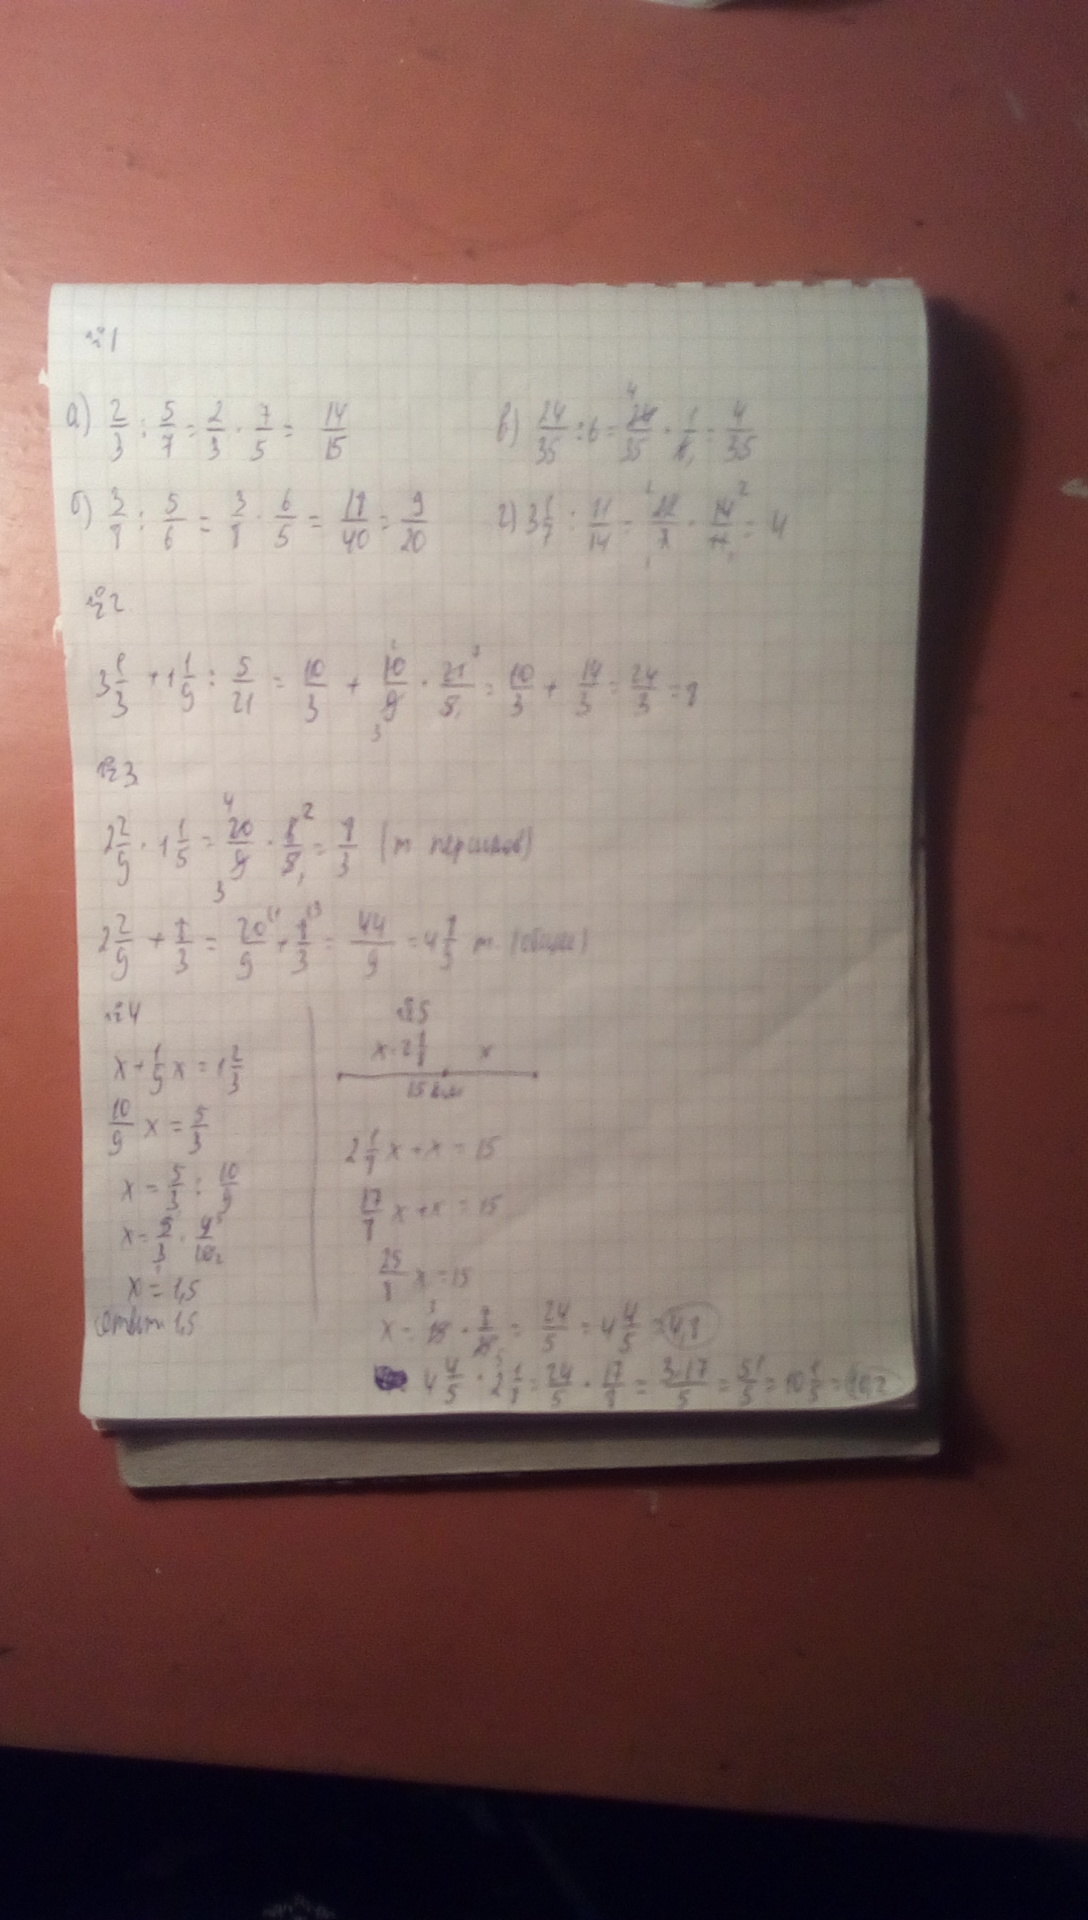 №1
а) 2/3 : 5/7 = 2/3 · 7/5 = 14/15
в) 24/35 : 6 = 24/35 · 1/6 = 4/35
б) 3/8 : 5/6 = 3/8 · 6/5 = 18/40 = 9/20
г) 3 1/7 : 11/14 = 22/7 · 14/11 = 4
№2
3 1/3 + 1 1/9 : 5/21 = 10/3 + 10/9 · 21/5 = 10/3 + 14/3 = 24/3 = 8
№3
2 2/9 · 1 1/5 = 20/9 · 6/5 = 8/3 (т персиков)
2 2/9 + 8/3 = 20/9 + 8/3 = 44/9 = 4 8/9 т. (общее)
№4
x + 1/9 x = 1 2/3
10/9 x = 5/3
x = 5/3 : 10/9
x = 5/3 · 9/10
x = 1,5
Ответ: 1,5
№5
x · 2 1/8 x
15 км
2 1/8 x + x = 15
17/8 x + x = 15
25/8 x = 15
x = 15 · 8/25 = 24/5 = 4 4/5 = 4,8
4 4/5 · 2 1/8 = 24/5 · 17/8 = 3·17/5 = 51/5 = 10 1/5 = 10,2